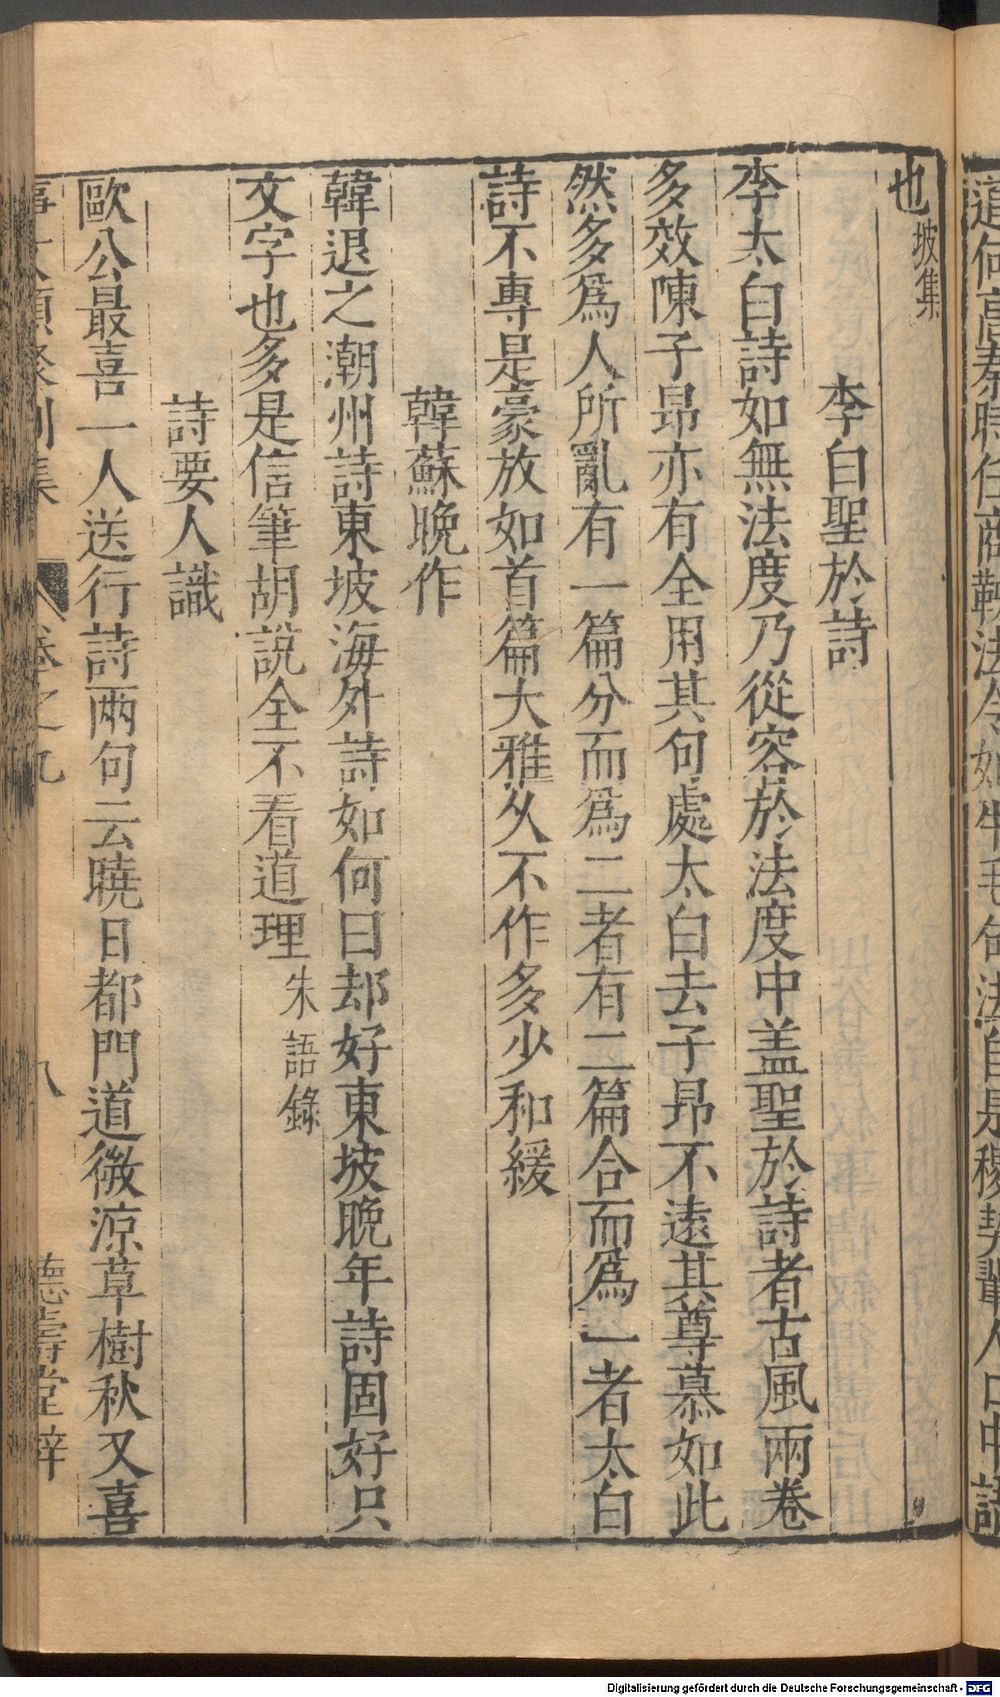 這何高秦時任商鞅法令如牛毛
也坡集
李白聖於詩
李太白詩如無法度乃從容於法度中盖聖於詩者古風兩卷
多效陳子昂亦有全用其句處太白去子昂不遠其尊慕如此
然多爲人所亂有一篇分而爲二者有二篇合而爲一者太白
詩不專是豪放如首篇大雅久不作多少和緩
韓蘇晚作
韓退之潮州詩東坡海外詩如何曰却好東坡晚年詩固好只
文字也多是信筆胡說全不看道理朱語錄
詩要人識
歐公最喜一人送行詩兩句云曉日都門道微涼草樹秋又喜
事文類聚別集 卷之九 八 德壽堂梓
Digitalisierung gefördert durch die Deutsche Forschungsgemeinschaft - DFG